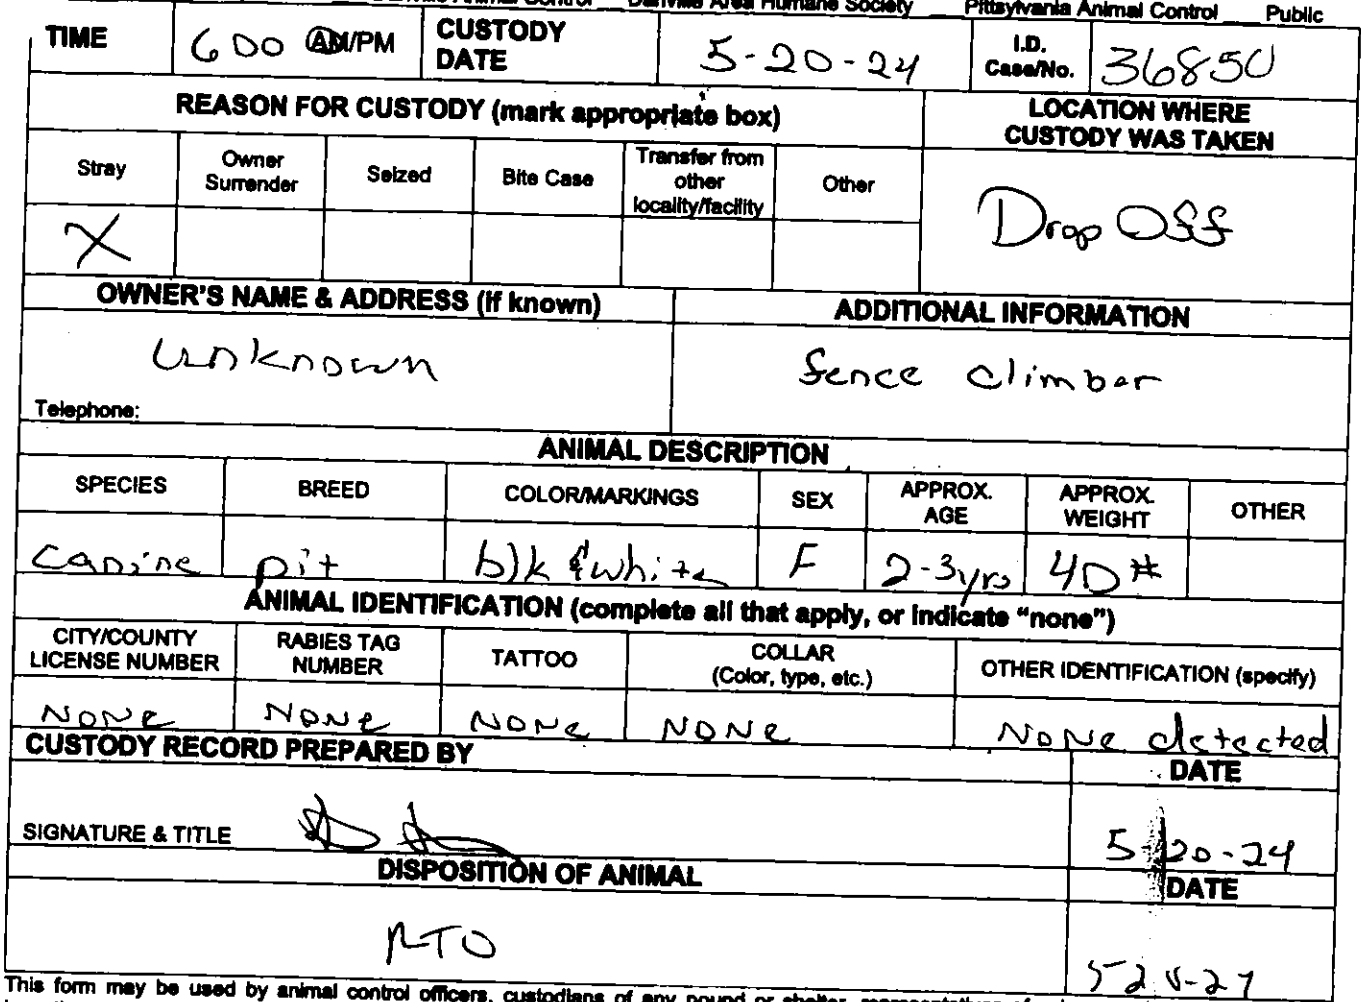 Animal Control Danville Area Humane Society Pittsylvania Animal Control Public
TIME 600 AM/PM CUSTODY DATE 5-20-24 I.D. Case/No. 36850
REASON FOR CUSTODY (mark appropriate box) LOCATION WHERE CUSTODY WAS TAKEN
Stray Owner Surrender Seized Bite Case Transfer from other locality/facility Other
X Drop Off
OWNER'S NAME & ADDRESS (if known) ADDITIONAL INFORMATION
unknown fence climber
Telephone:
ANIMAL DESCRIPTION
SPECIES BREED COLOR/MARKINGS SEX APPROX. AGE APPROX. WEIGHT OTHER
canine pit blk & white F 2-3yrs 40#
ANIMAL IDENTIFICATION (complete all that apply, or indicate "none")
CITY/COUNTY LICENSE NUMBER RABIES TAG NUMBER TATTOO COLLAR (Color, type, etc.) OTHER IDENTIFICATION (specify)
NONE NONE NONE NONE NONE detected
CUSTODY RECORD PREPARED BY DATE
SIGNATURE & TITLE 5-20-24
DISPOSITION OF ANIMAL DATE
RTO
This form may be used by animal control officers, custodians of any pound or shelter, representatives of